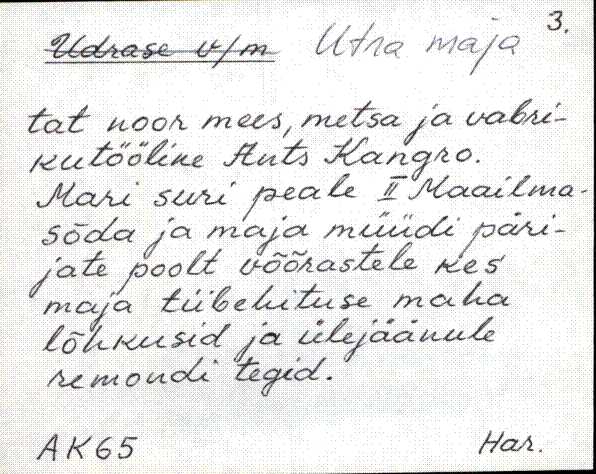 3.
Udrase v/m Utra maja
tat noor mees, metsa ja vabri-
kutööline Ants Kangro.
Mari suri peale II Maailma-
sõda ja maja müüdi päri-
jate poolt võõrastele kes
maja tiibehituse maha
lõhkusid ja ülejäänule
remondi tegid.
AK65 Har.